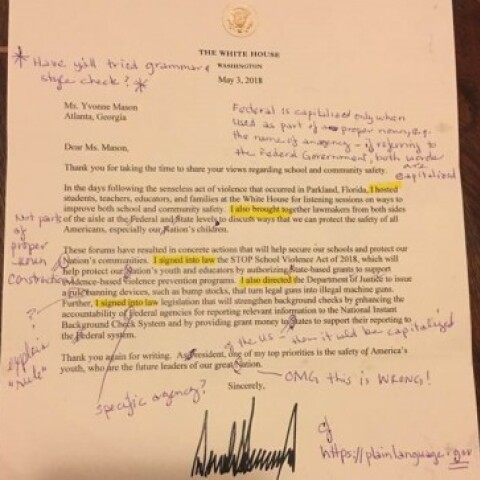 THE WHITE HOUSE
WASHINGTON
May 3, 2018
* Have y'all tried grammar &
style check? *
Ms. Yvonne Mason
Atlanta, Georgia
Federal is capitalized only when
used as part of a proper noun, e.g.
the name of an agency - if referring to
the Federal Government, both words
are
capitalized
Dear Ms. Mason,
Thank you for taking the time to share your views regarding school and community safety.
In the days following the senseless act of violence that occurred in Parkland, Florida, I hosted
students, teachers, educators, and families at the White House for listening sessions on ways to
improve both school and community safety. I also brought together lawmakers from both sides
of the aisle at the Federal and State levels to discuss ways that we can protect the safety of all
Americans, especially our Nation's children.
Not part
of
proper
noun
construction
These forums have resulted in concrete actions that will help secure our schools and protect our
Nation's communities. I signed into law the STOP School Violence Act of 2018, which will
help protect our Nation's youth and educators by authorizing State-based grants to support
evidence-based violence prevention programs. I also directed the Department of Justice to issue
a rule banning devices, such as bump stocks, that turn legal guns into illegal machine guns.
Further, I signed into law legislation that will strengthen background checks by enhancing the
accountability of Federal agencies for reporting relevant information to the National Instant
Background Check System and by providing grant money to States to support their reporting to
the Federal system.
?
explain
"rule"
of the US - then it would be capitalized
Thank you again for writing. As President, one of my top priorities is the safety of America's
youth, who are the future leaders of our great Nation.
OMG this is WRONG!
specific agency?
Sincerely,
cf
https://plainlanguage.gov